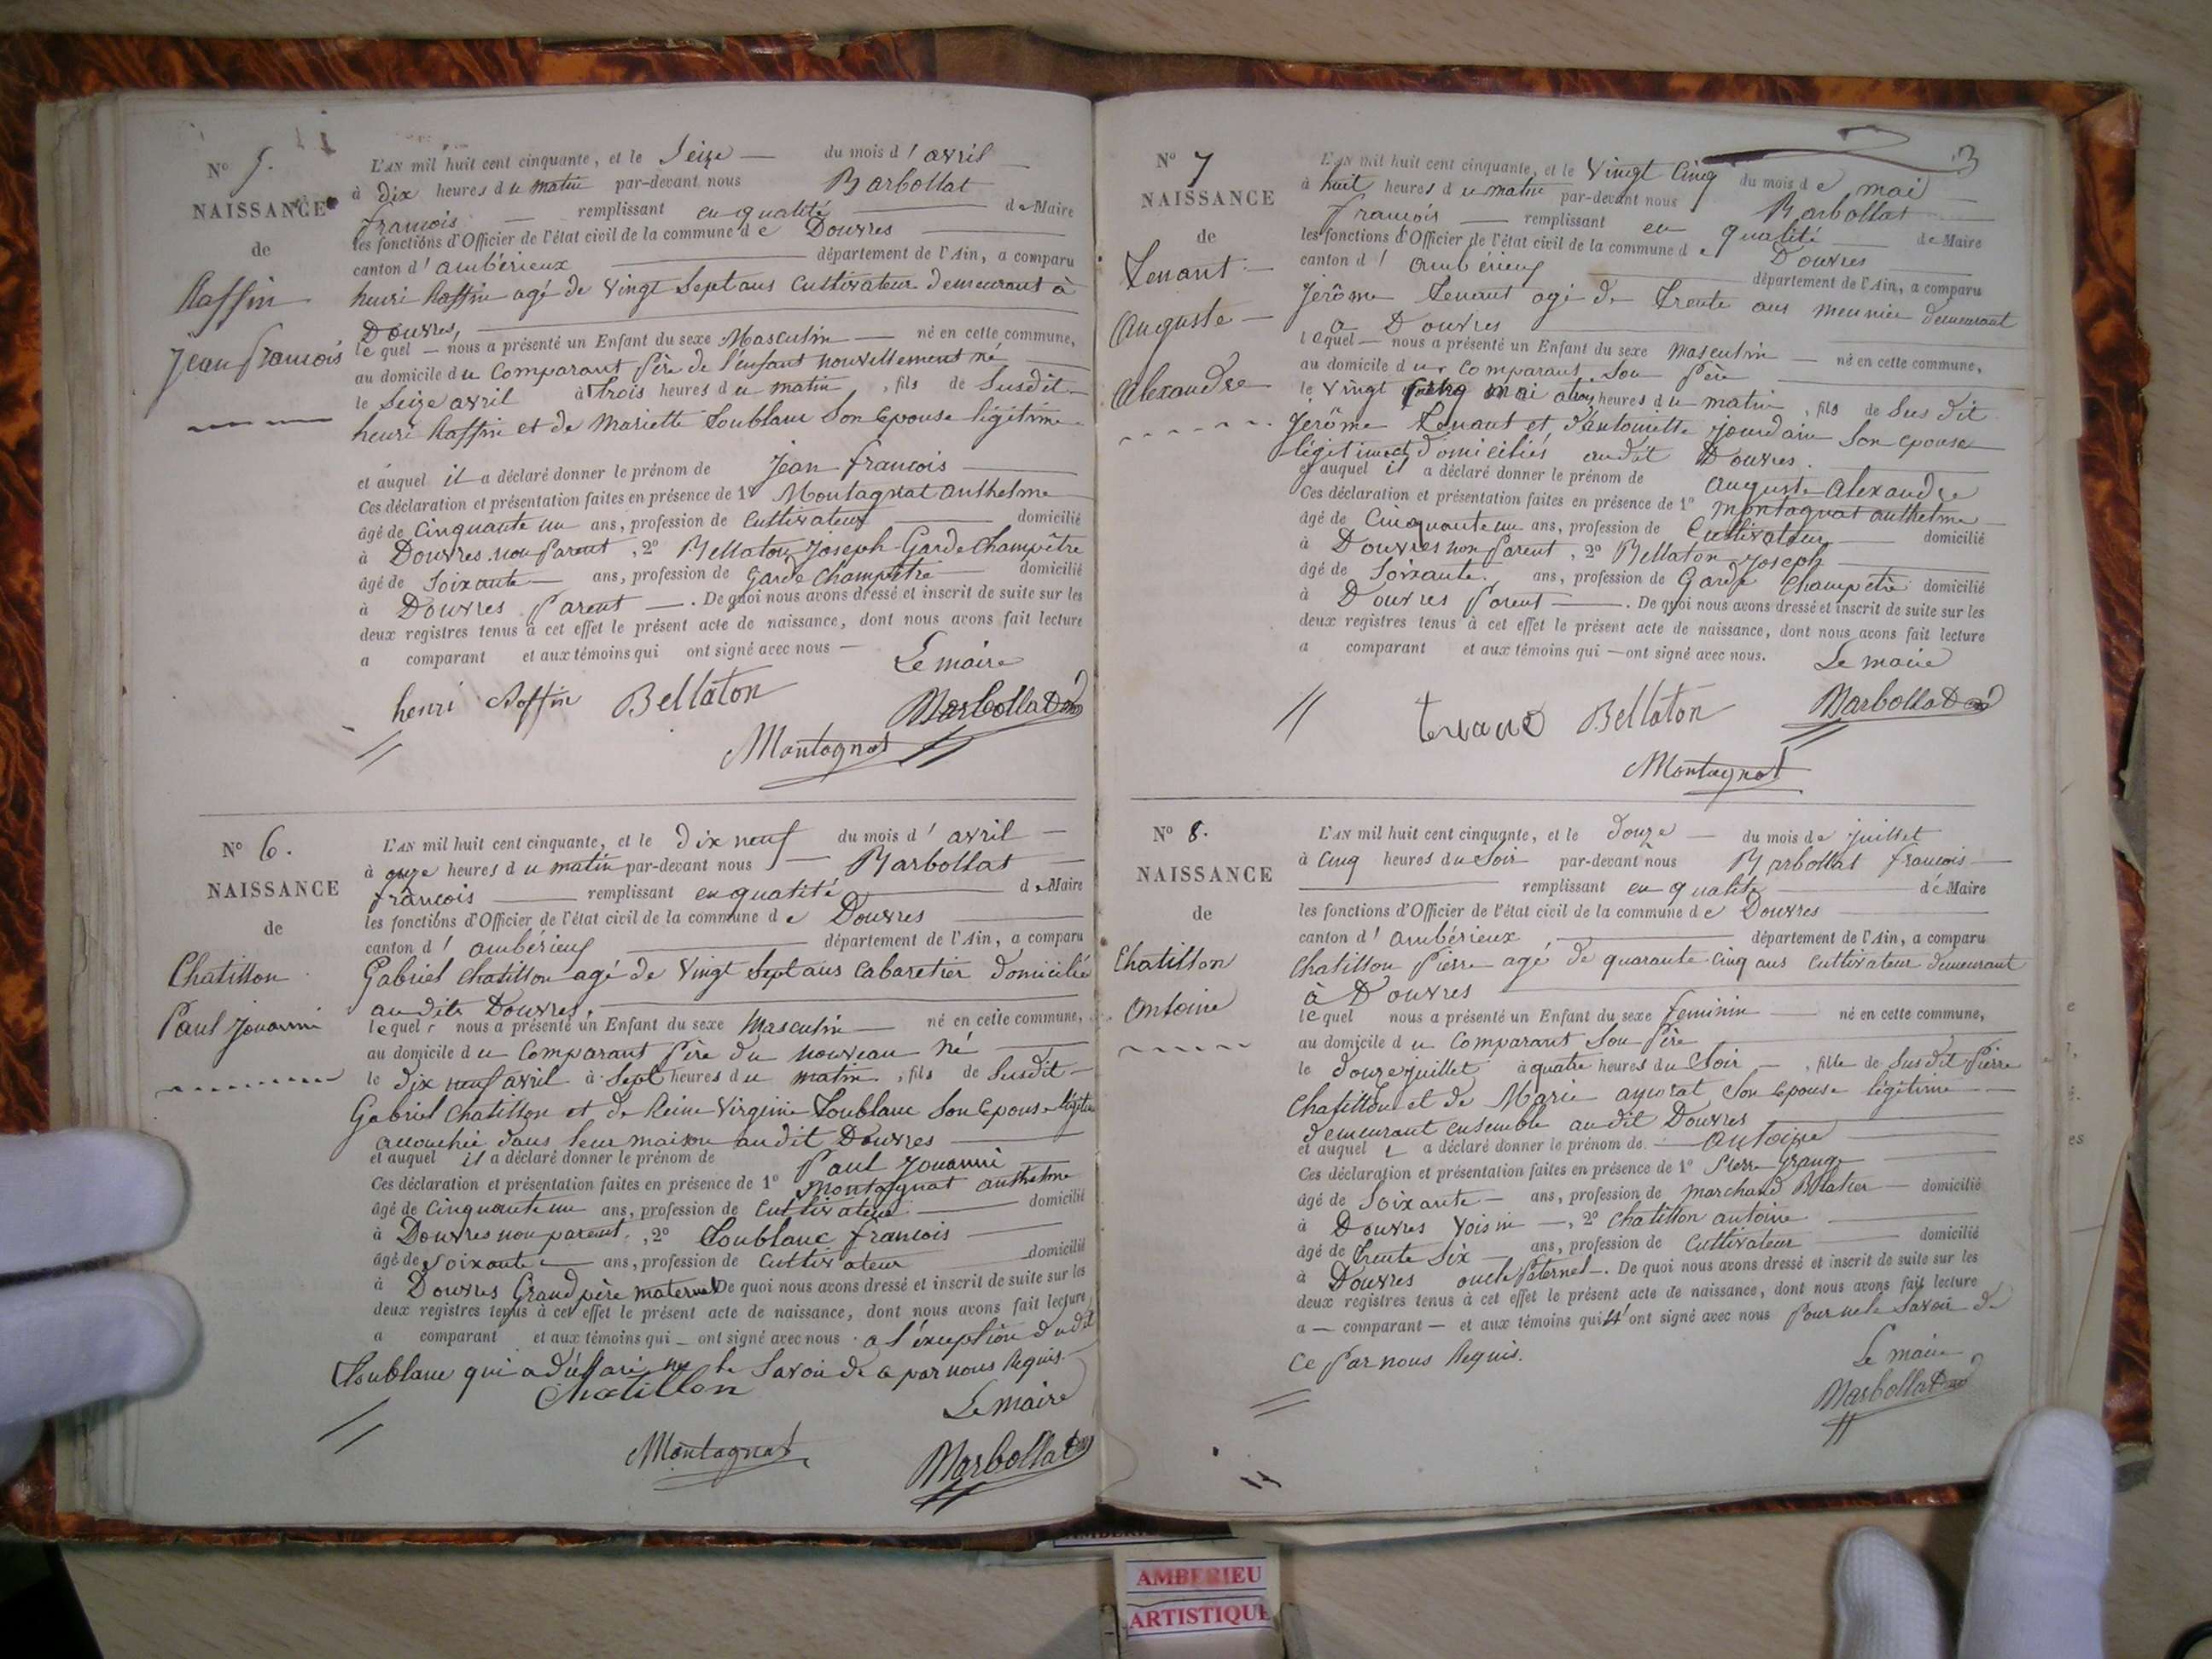 N° 5.
NAISSANCE
de
Raffin
Jean francois
L'AN mil huit cent cinquante, et le Seize — du mois d'avril
à dix heures du matin par-devant nous Barbollat
francois — remplissant en qualité — de Maire
les fonctions d'Officier de l'état civil de la commune de Douvres
canton d'ambérieux — département de l'Ain, a comparu
henri Raffin agé de Vingt Sept ans Cultivateur demeurant à
Douvres,
lequel — nous a présenté un Enfant du sexe Masculin — né en cette commune,
au domicile du Comparant Père de l'enfant nouvellement né
le Seize avril à trois heures du matin, fils de Susdit
henri Raffin et de Mariette Loublanc Son Epouse légitime
et auquel il a déclaré donner le prénom de Jean francois
Ces déclaration et présentation faites en présence de 1° Montagnat anthelme
âgé de Cinquante un ans, profession de Cultivateur — domicilié
à Douvres non Parent, 2° Bellaton Joseph Garde Champêtre
âgé de Soixante — ans, profession de Garde Champêtre — domicilié
à Douvres Parent —. De quoi nous avons dressé et inscrit de suite sur les
deux registres tenus à cet effet le présent acte de naissance, dont nous avons fait lecture
a comparant et aux témoins qui ont signé avec nous —
Le maire
henri Raffin Bellaton Barbollat
Montagnat
N° 6.
NAISSANCE
de
Chatillon
Paul Jouanni
L'AN mil huit cent cinquante, et le dix neuf du mois d'avril —
à onze heures du matin par-devant nous — Barbollat
francois — remplissant en qualité — de Maire
les fonctions d'Officier de l'état civil de la commune de Douvres
canton d'ambérieux — département de l'Ain, a comparu
Gabriel Chatillon agé de Vingt Sept ans Cabaretier domicilié
audit Douvres,
lequel nous a présenté un Enfant du sexe Masculin — né en cette commune,
au domicile du Comparant Père du nouveau né
le dix neuf avril à Sept heures du matin, fils de Susdit —
Gabriel Chatillon et de Reine Virginie Loublanc Son Epouse légitime
accouchée dans leur maison audit Douvres
et auquel il a déclaré donner le prénom de Paul Jouanni
Ces déclaration et présentation faites en présence de 1° Montagnat anthelme
âgé de Cinquante un ans, profession de Cultivateur — domicilié
à Douvres non parent, 2° Loublanc francois
âgé de Soixante — ans, profession de Cultivateur domicilié
à Douvres Grand père maternel De quoi nous avons dressé et inscrit de suite sur les
deux registres tenus à cet effet le présent acte de naissance, dont nous avons fait lecture
a comparant et aux témoins qui — ont signé avec nous a l'exception dudit
Loublanc qui a déclaré ne le Savoir de ce par nous Requis.
Chatillon Le maire
Montagnat Barbollat
3
N° 7
NAISSANCE
de
Tenant
Auguste
Alexandre
L'AN mil huit cent cinquante, et le Vingt Cinq du mois de mai
à huit heures du matin par-devant nous Barbollat
francois — remplissant en qualité — de Maire
les fonctions d'Officier de l'état civil de la commune de Douvres
canton d'ambérieux département de l'Ain, a comparu
Jerôme Tenant agé de Trente ans Meunier demeurant
a Douvres
lequel — nous a présenté un Enfant du sexe Masculin — né en cette commune,
au domicile du Comparant Son Père
le Vingt Cinq mai a trois heures du matin, fils de Sus dit
Jerôme Tenant et d'Antoinette Jourdain Son Epouse
légitime domiciliés audit Douvres.
et auquel il a déclaré donner le prénom de Auguste Alexandre
Ces déclaration et présentation faites en présence de 1° Montagnat anthelme
âgé de Cinquante un ans, profession de Cultivateur domicilié
à Douvres non Parent, 2° Bellaton Joseph
âgé de Soixante. ans, profession de Garde Champetre domicilié
à Douvres Parent —. De quoi nous avons dressé et inscrit de suite sur les
deux registres tenus à cet effet le présent acte de naissance, dont nous avons fait lecture
a comparant et aux témoins qui — ont signé avec nous. Le maire
Bellaton Barbollat
Montagnat
N° 8.
NAISSANCE
de
Chatillon
Antoine
L'AN mil huit cent cinquante, et le douze — du mois de juillet
à Cinq heures du Soir par-devant nous Barbollat francois —
remplissant en qualité — de Maire
les fonctions d'Officier de l'état civil de la commune de Douvres
canton d'ambérieux — département de l'Ain, a comparu
Chatillon Pierre agé de quarante Cinq ans Cultivateur demeurant
à Douvres
lequel nous a présenté un Enfant du sexe feminin — né en cette commune,
au domicile du Comparant Son Père
le douze juillet à quatre heures du Soir —, fille de Susdit Pierre
Chatillon et de Marie Son Epouse légitime
demeurant ensemble audit Douvres
et auquel a déclaré donner le prénom de Antoine
Ces déclaration et présentation faites en présence de 1° Pierre Grange
âgé de Soixante — ans, profession de Marchand — domicilié
à Douvres Voisin —, 2° Chatillon antoine
âgé de Trente Six ans, profession de Cultivateur — domicilié
à Douvres oncle Paternel —. De quoi nous avons dressé et inscrit de suite sur les
deux registres tenus à cet effet le présent acte de naissance, dont nous avons fait lecture
a — comparant — et aux témoins qui n'ont signé avec nous Pour ne le Savoir de
Ce Par nous Requis.
Le maire
Barbollat
AMBERIEU
ARTISTIQUE